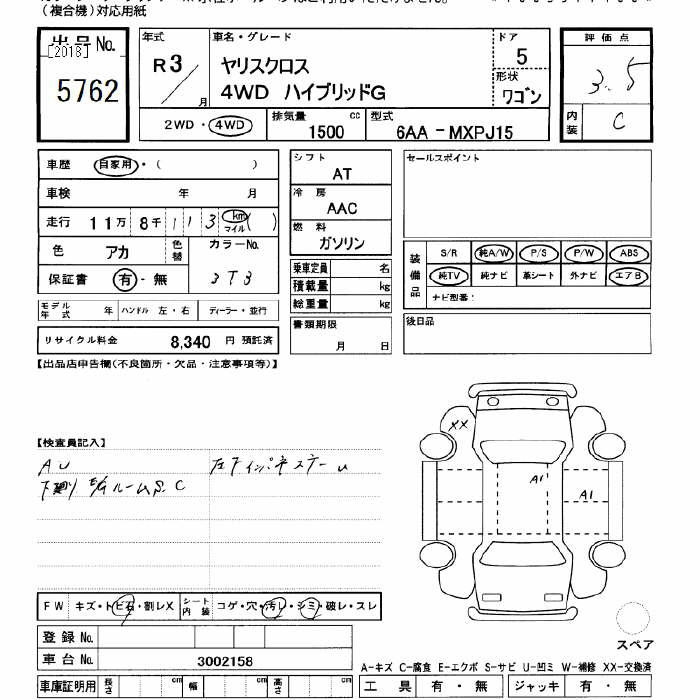 (複合機)対応用紙
出品 No.
[2018]
5762
年式
R3/
月
車名・グレード
ヤリスクロス
4WD ハイブリッドG
ドア
5
形状
ワゴン
評価点
3.5
内装
C
2WD・4WD
排気量
1500
cc
型式
6AA-MXPJ15
車歴 自家用・( )
車検 年 月
走行 11万 8千 113 km マイル ( )
色 アカ
色替
カラーNo.
3T3
保証書 有・無
モデル年式 年 ハンドル 左・右 ディーラー・並行
リサイクル料金 8,340 円 預託済
シフト
AT
冷房
AAC
燃料
ガソリン
乗車定員 名
積載量 kg
総重量 kg
書類期限
月 日
セールスポイント
装備品
S/R 純A/W P/S P/W ABS
純TV 純ナビ 革シート 外ナビ エアB
ナビ型番:
後日品
【出品店申告欄(不良箇所・欠品・注意事項等)】
【検査員記入】
AU
下廻り
ルームS.C
XX
A1
A1
FW キズ・トビ石・割レX
シート内装 コゲ・穴・汚レ・シミ・破レ・スレ
登録 No.
車台 No. 3002158
スペア
A-キズ C-腐食 E-エクボ S-サビ U-凹ミ W-補修 XX-交換済
車庫証明用 長さ cm 幅 cm 高さ cm
工具 有・無 ジャッキ 有・無